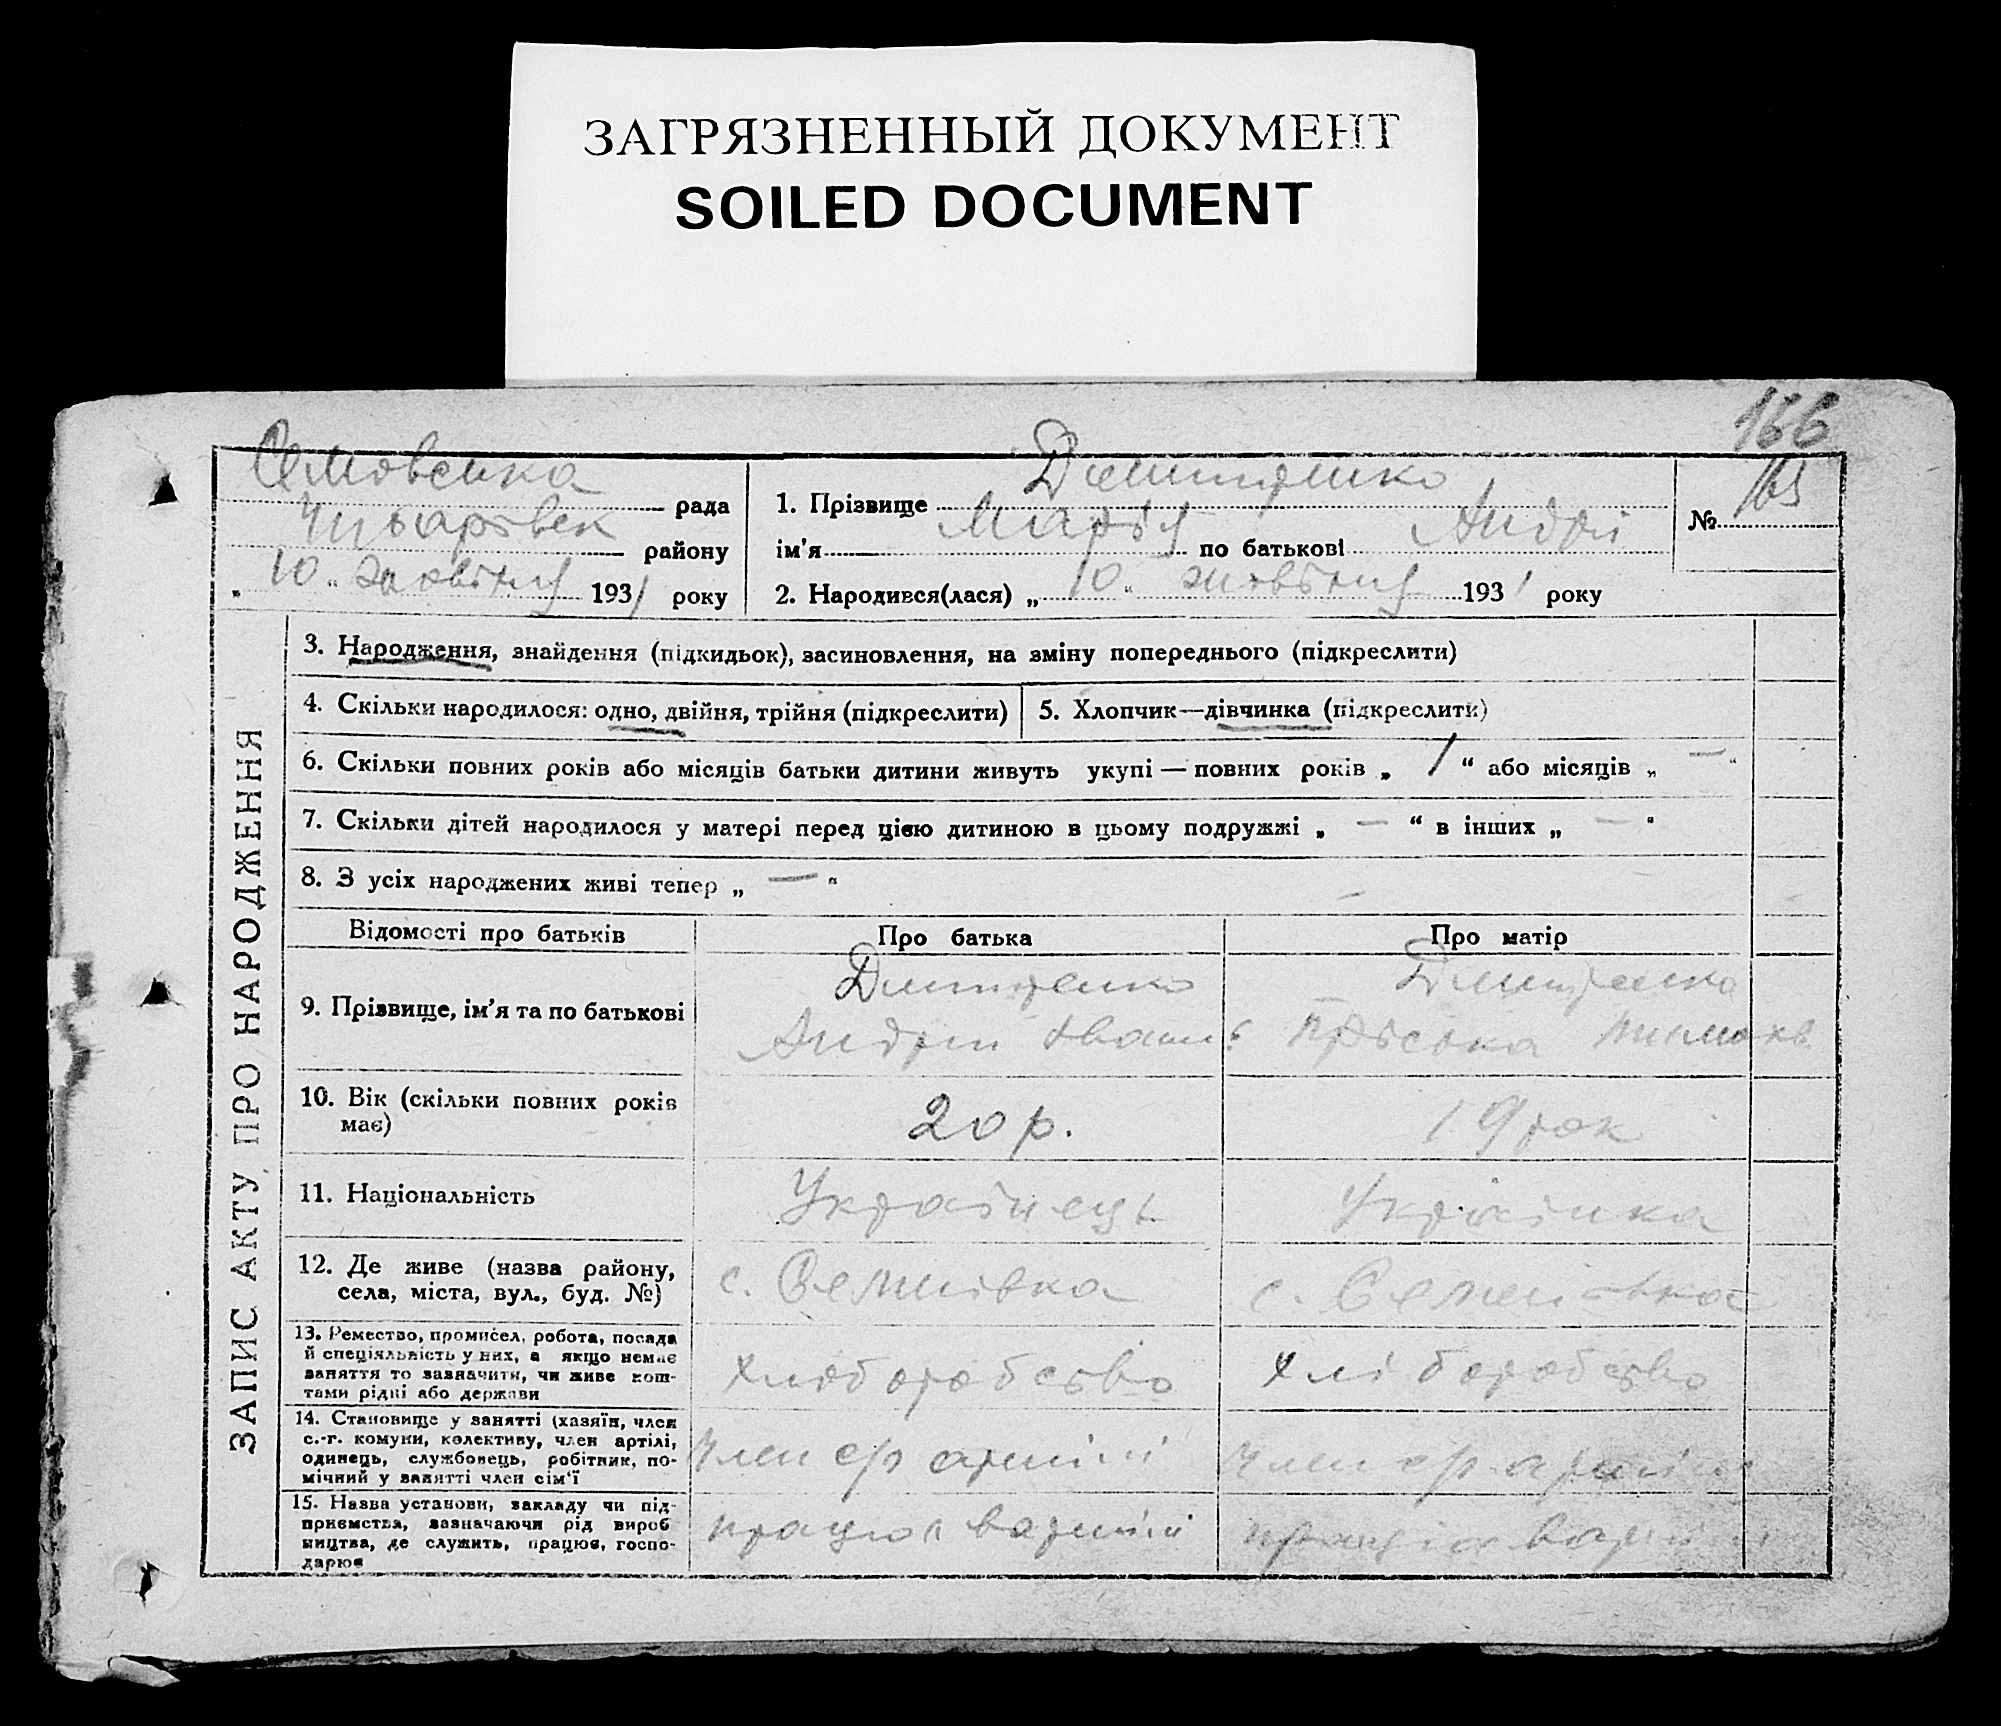 ЗАГРЯЗНЕННЫЙ ДОКУМЕНТ
SOILED DOCUMENT
166
рада
району
" 10 " жовтня 1931 року
1. Прізвище Дмитренко
ім'я Марія по батькові Андрі
№ 163
2. Народився(лася) „ 10 " жовтня 1931 року
ЗАПИС АКТУ ПРО НАРОДЖЕННЯ
3. Народження, знайдення (підкидьок), засиновлення, на зміну попереднього (підкреслити)
4. Скільки народилося: одно, двійня, трійня (підкреслити)
5. Хлопчик—дівчинка (підкреслити)
6. Скільки повних років або місяців батьки дитини живуть укупі — повних років „ 1 “ або місяців „ — “
7. Скільки дітей народилося у матері перед цією дитиною в цьому подружжі „ — “ в інших „ — “
8. З усіх народжених живі тепер „ — “
Відомості про батьків
Про батька
Про матір
9. Прізвище, ім'я та по батькові
Дмитренко
Андрій Іван
Дмитренко
Пріська
10. Вік (скільки повних років
має)
20 р.
19 рок
11. Національність
Українець
Українка
12. Де живе (назва району,
села, міста, вул., буд. №)
с. Семенівка
с. Семенівка
13. Ремество, промисел, робота, посада
й спеціяльність у них, а якщо немає
заняття то зазначити, чи живе кош-
тами рідні або держави
Хліборобство
Хліборобство
14. Становище у занятті (хазяїн, член
с.-г. комуни, колективу, член артілі,
одинець, службовець, робітник, по-
мічний у занятті член сім'ї
Член с/г артілі
Член с/г артілі
15. Назва установи, закладу чи під-
приємства, зазначаючи рід вироб
ництва, де служить, працює, госпо-
дарює
в артілі
в артілі